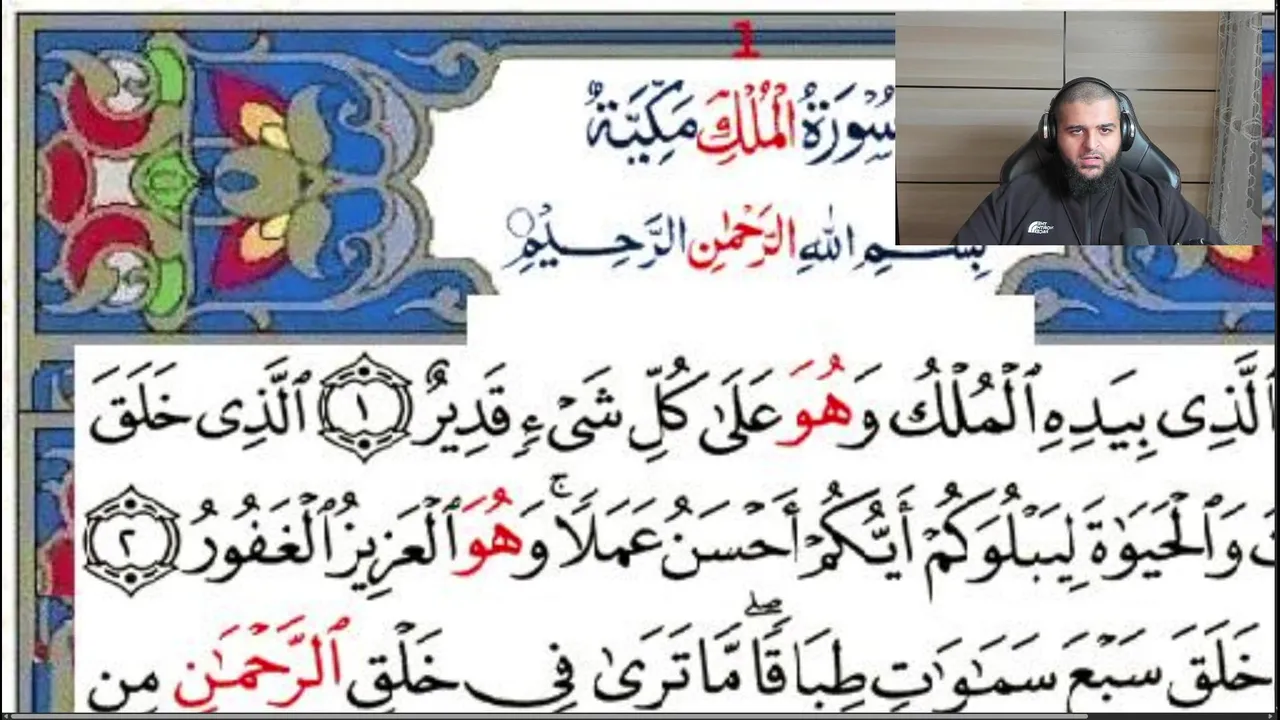 1
سُورَةُ الْمُلْكِ مَكِّيَّةٌ
بِسْمِ اللهِ الرَّحْمٰنِ الرَّحِيمِ
ٱلَّذِى بِيَدِهِ ٱلْمُلْكُ وَهُوَ عَلَىٰ كُلِّ شَىْءٍ قَدِيرٌ ١ ٱلَّذِى خَلَقَ
وَٱلْحَيَوٰةَ لِيَبْلُوَكُمْ أَيُّكُمْ أَحْسَنُ عَمَلًا ۚ وَهُوَ ٱلْعَزِيزُ ٱلْغَفُورُ ٢
خَلَقَ سَبْعَ سَمَٰوَٰتٍ طِبَاقًا ۖ مَّا تَرَىٰ فِى خَلْقِ ٱلرَّحْمَٰنِ مِن
THE NORTH FACE